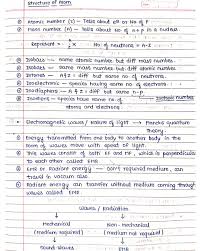 Structure of Atom
Atomic number (Z) - Tells about no of P
Mass number (A) - Tells about No of n + p in a nucleus.
Represent = X No. of neutrons = A-Z
Isotopes - same atomic number but diff mass number.
Isobars - same mass number but diff atomic number.
Isotones - A-Z = diff but same no. of neutrons.
Isoelectronic - species having same no of electrons
Isodiaphers - A & Z = diff but same n-p.
Isosters - species have same no of atoms and electrons.
Electromagnetic waves / Nature of light → Planck's Quantum
Theory.
Energy transmitted from one body to another body in the
form of waves move with speed of light.
This waves consist of both EF and MF, which is perpendicular
to each other called EMR
EMR or Radiant energy - don't required medium, can
travel in vacuum also
Radiant energy can transfer without medium coming through
waves called EMR
Waves / Radiation
Mechanical Non-Mechanical
(Medium required) (Medium not required)
Sound waves EMR